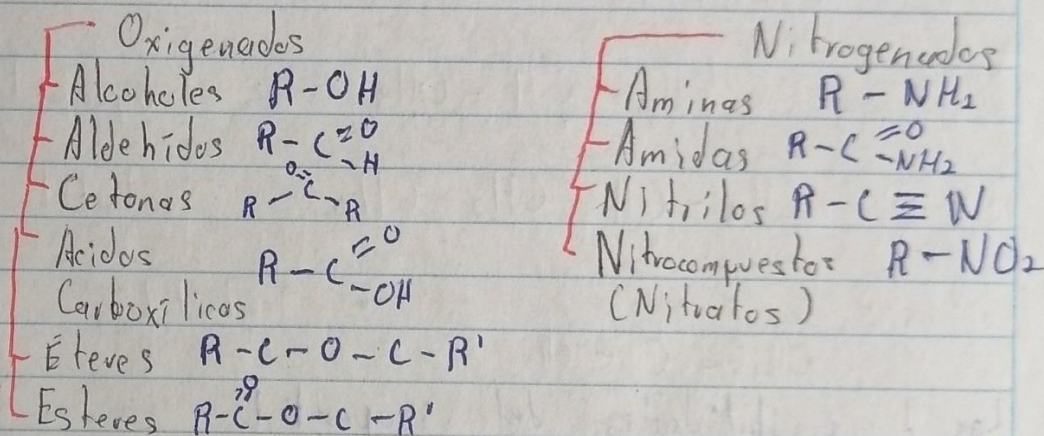 Oxigenados
Alcoholes R-OH
Aldehídos R-C=O
-H
Cetonas R-C-R
O=
Acidos R-C=O
Carboxílicos -OH
Éteres R-C-O-C-R'
Esteres R-C-O-C-R'
=O
Nitrogenados
Aminas R-NH₂
Amidas R-C=O
-NH₂
Nitrilos R-C≡N
Nitrocompuestos R-NO₂
(Nitratos)